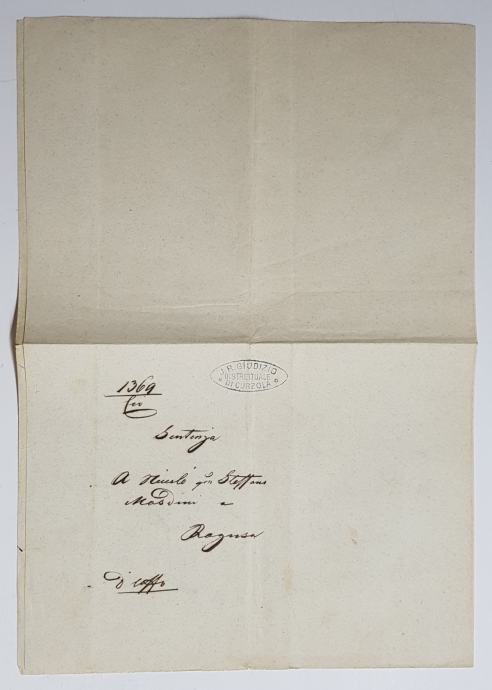 J. R. GIUDIZIO
DISTRETTUALE
DI CURZOLA
1369
Civ
Sentenza
A Nicolò qm Steffano
a
Ragusa